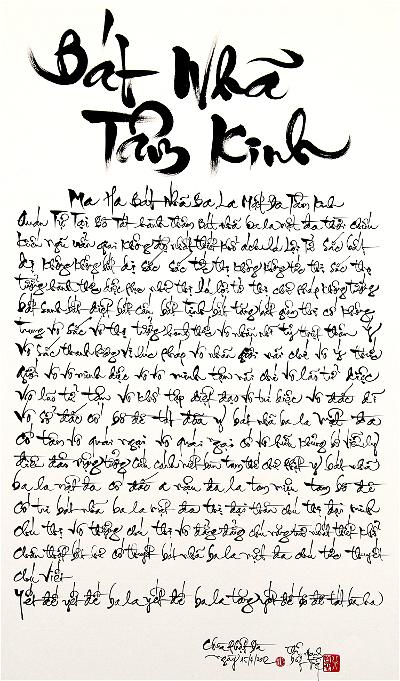 Bát Nhã
Tâm Kinh
Ma Ha Bát Nhã Ba La Mật Đa Tâm Kinh
Quán Tự Tại Bồ Tát hành thâm Bát nhã ba la mật đa thời chiếu
kiến ngũ uẩn giai không độ nhất thiết khổ ách Xá Lợi Tử Sắc bất
dị không không bất dị sắc sắc tức thị không không tức thị sắc thọ
tưởng hành thức diệc phục như thị Xá lợi tử thị chư pháp không tướng
bất sanh bất diệt bất cấu bất tịnh bất tăng bất giảm thị cố không
trung vô sắc vô thọ tưởng hành thức vô nhãn nhĩ tỷ thiệt thân ý
vô sắc thanh hương vị xúc pháp vô nhãn giới nãi chí vô ý thức
giới vô vô minh diệc vô vô minh tận nãi chí vô lão tử diệc
vô lão tử tận vô khổ tập diệt đạo vô trí diệc vô đắc dĩ
vô sở đắc cố bồ đề tát đõa y bát nhã ba la mật đa
cố tâm vô quái ngại vô quái ngại cố vô hữu khủng bố viễn ly
điên đảo mộng tưởng cứu cánh niết bàn tam thế chư Phật y bát nhã
ba la mật đa cố đắc a nậu đa la tam miệu tam bồ đề
cố tri bát nhã ba la mật đa thị đại thần chú thị đại minh
chú thị vô thượng chú thị vô đẳng đẳng chú năng trừ nhất thiết khổ
chân thiệt bất hư cố thuyết bát nhã ba la mật đa chú tức thuyết
chú viết
Yết đế yết đế ba la yết đế ba la tăng yết đế bồ đề tát bà ha